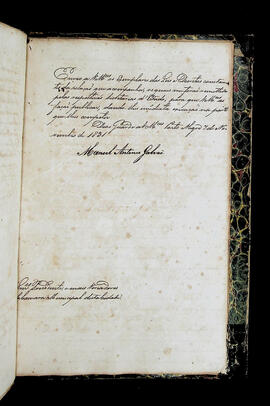 Envio a V.Mces os Exemplares das Leis e Decretos constantes
da relação que acompanha, e que me forão remettidos
pelas respectivas Secretarias d'Estado, para que V.Mces os
fação publicar, dando lhes inteira execução na parte
que lhes competir.
Deos Guarde a V.Mces Porto Alegre 7 de No
vembro de 1831
Manoel Antonio Galvão
Snres Presidente, e mais Vereadores
Camara Municipal desta Cidade